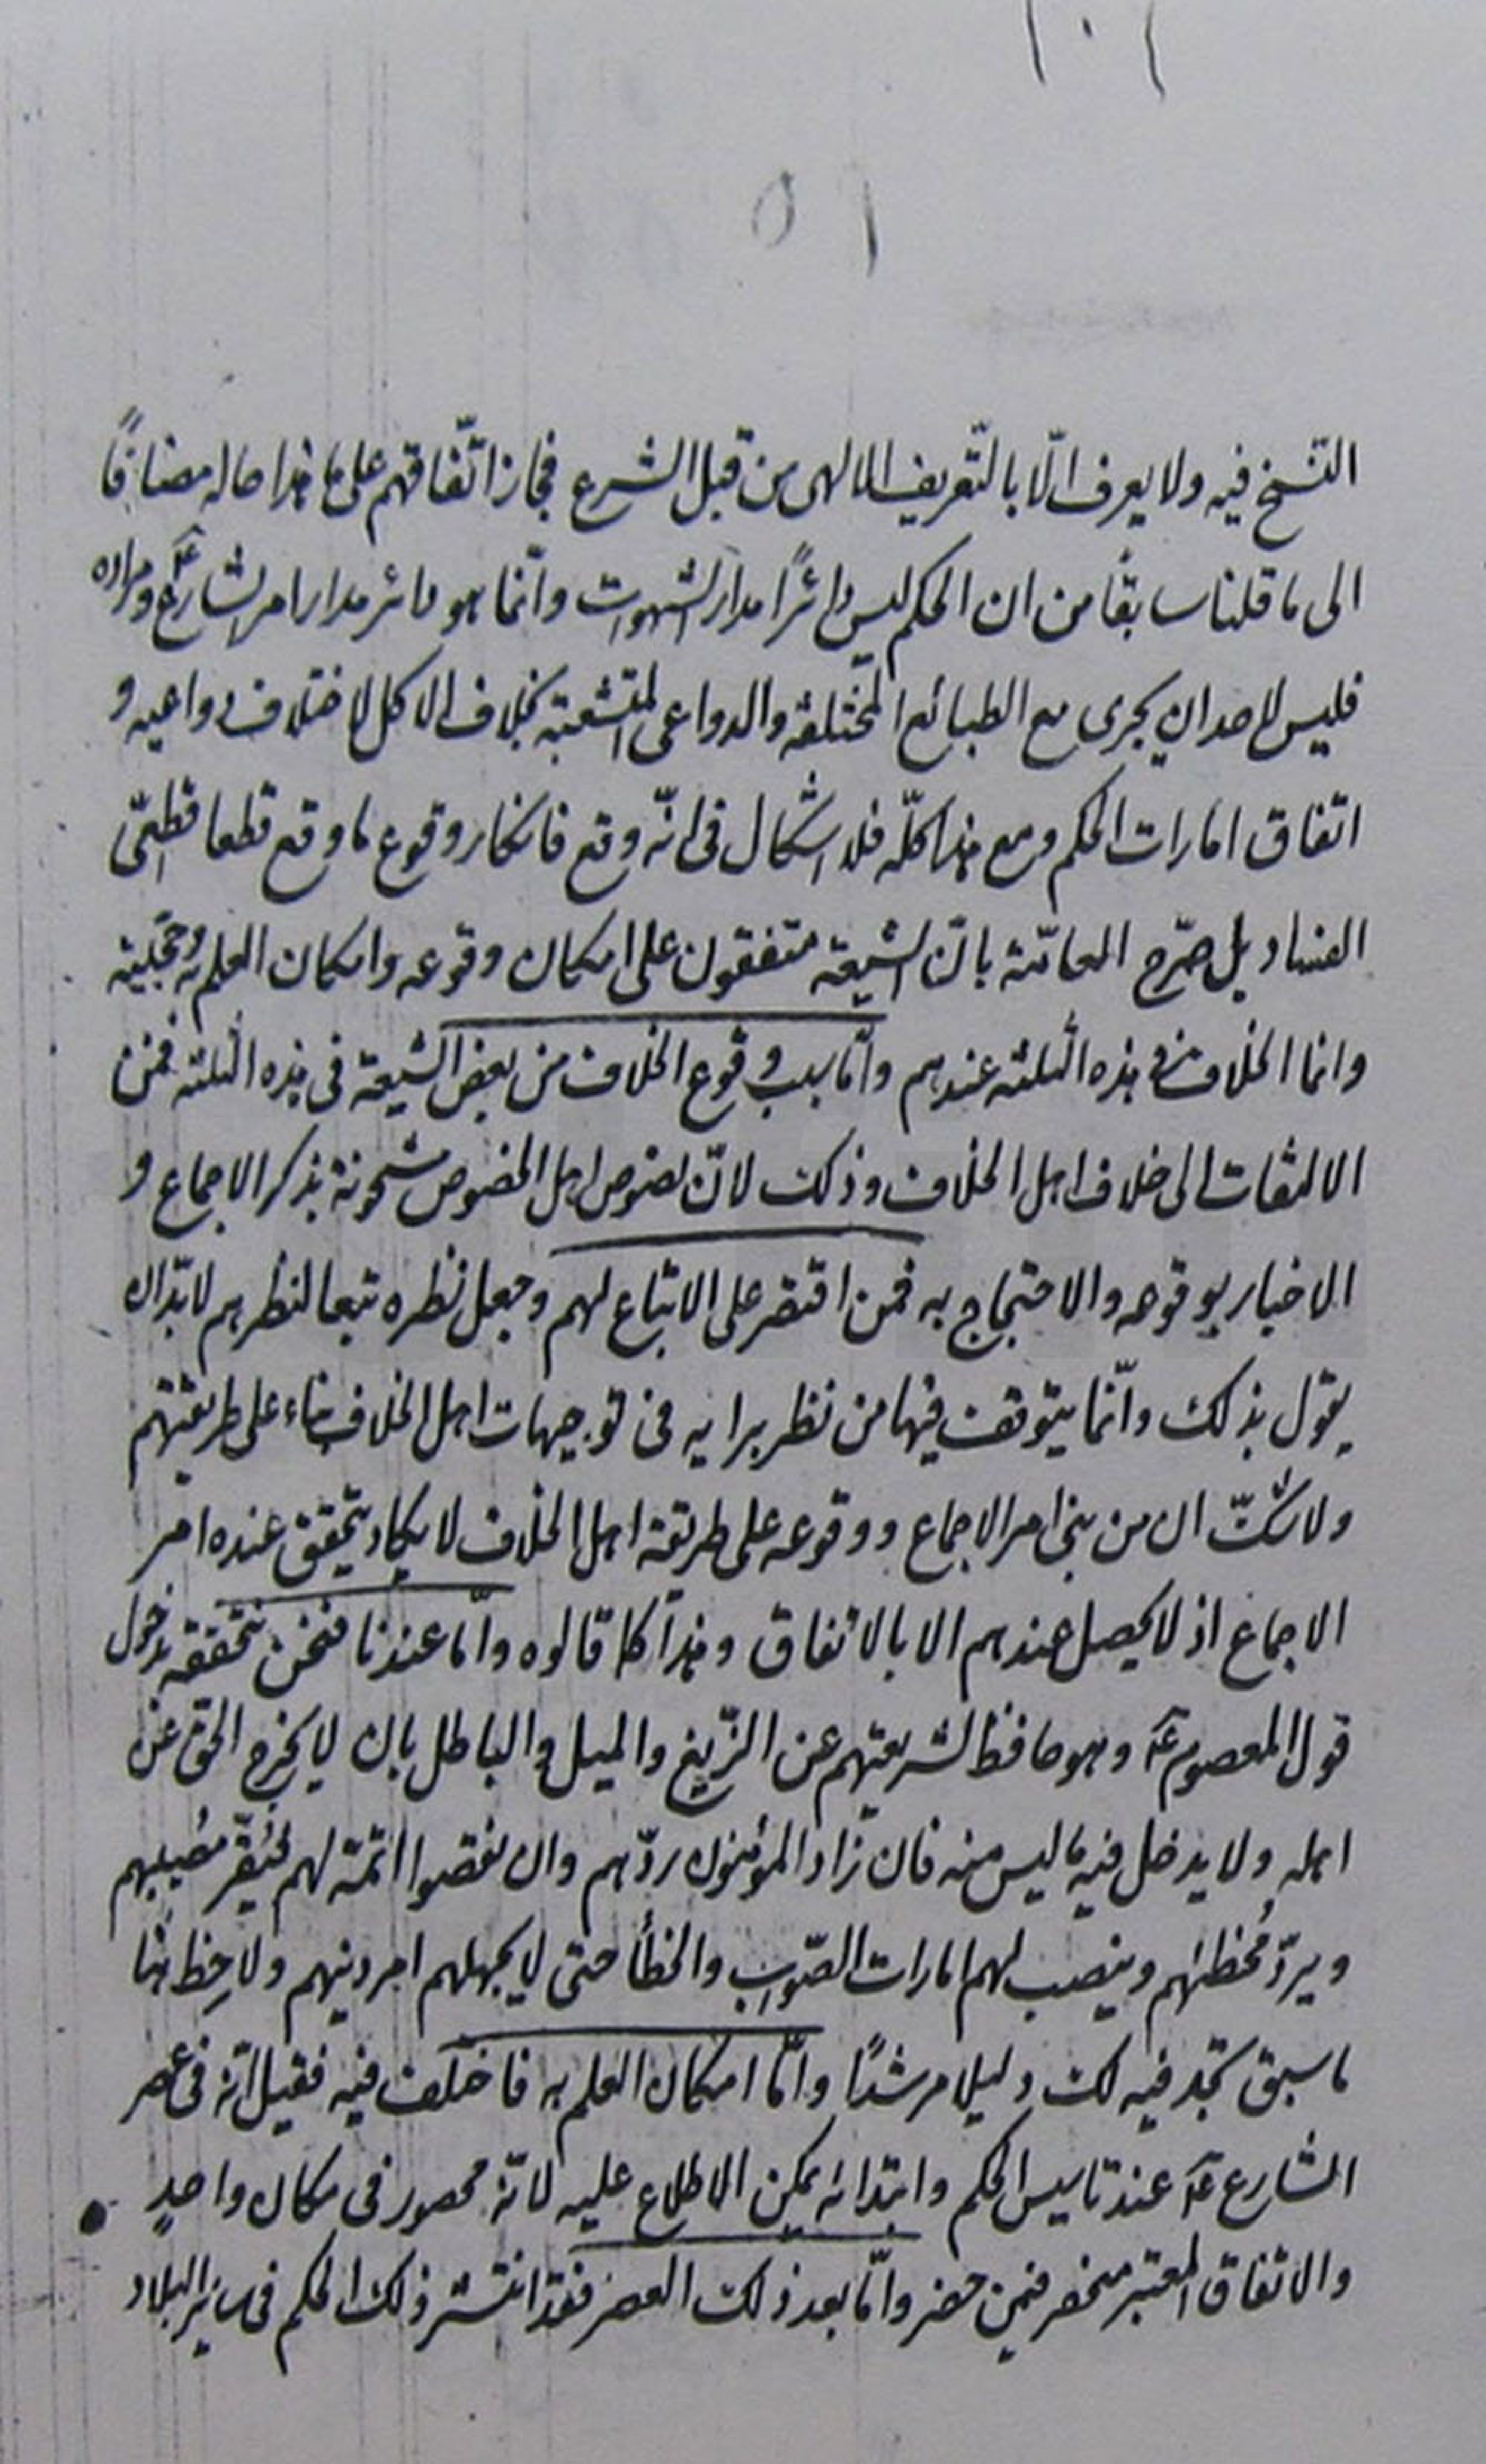 ١٠١
٥١
النسخ فيه ولا يعرف الّا بالتّعريف الالهى من قبل الشرع فجاز اتّفاقهم على ما هذا حاله مضافًا
الى ما قلنا سابقًا من ان الحكم ليس دائرًا مدار الشهوات وانّما هو دائر مدار امر الشارع ع ومراده
فليس لاحد ان يجرى مع الطبائع المختلفة والدواعى المتشعبة بخلاف الاكل لاختلاف دواعيه و
اتفاق امارات الحكم ومع هذا كلّه فلا اشكال فى انّه وقع فانكار وقوع ما وقع قطعا قطعىّ
الفساد بل صرّح العامّة بانّ الشيعة متفقون على امكان وقوعه وامكان العلم به وحجّيته
وانما الخلاف فى هذه الثلثة عندهم وامّا سبب وقوع الخلاف من بعض الشيعة فى هذه الثلثة فمن
الالتفات الى خلاف اهل الخلاف وذلك لانّ نصوص اهل الخصوص مشحونة بذكر الاجماع و
الاخبار بوقوعه والاحتجاج به فمن اقتصر على الاتباع لهم وجعل نظره تبعا لنظرهم لابدّ ان
يقول بذلك وانّما يتوقف فيها من نظر برايه فى توجيهات اهل الخلاف بناء على طريقتهم
ولا شكّ ان من بنى امر الاجماع ووقوعه على طريقة اهل الخلاف لا يكاد يتحقق عنده امر
الاجماع اذ لا يحصل عندهم الا بالاتفاق وهذا كما قالوه وامّا عندنا فنحن نتحققه بدخول
قول المعصوم ع وهو حافظ لشريعتهم عن الزّيغ والميل والباطل بان لا يخرج الحق عن
اهله ولا يدخل فيه ما ليس منه فان زاد المؤمنون ردّهم وان نقصوا اتمّه لهم فيُقرّ مُصيبهم
ويردّ مُخطئهم وينصب لهم امارات الصّواب والخطأ حتى لا يجهلهم امر دينهم ولاحِظ هنا
ما سبق تجد فيه لك دليلا مرشدًا وامّا امكان العلم به فاختُلف فيه فقيل انّه فى عصر
الشارع ع عند تاسيس الحكم وابتدائه يمكن الاطلاع عليه لانّه محصور فى مكان واحدٍ
والاتفاق المعتبر منحصر فيمن حضر وامّا بعد ذلك العصر فقد انتشر ذلك الحكم فى سائر البلاد